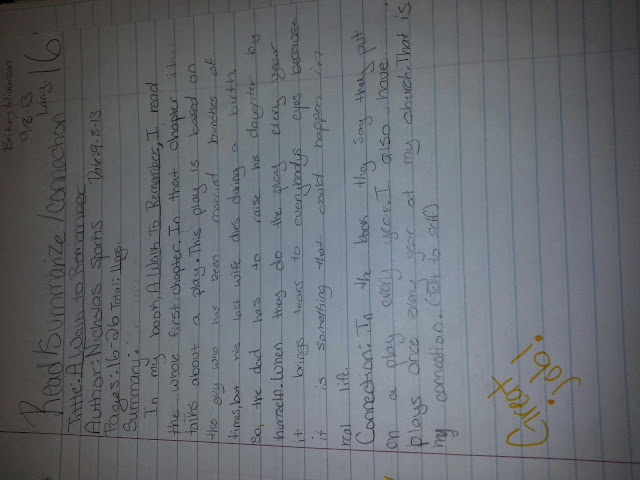 9.8.13
Lang 16
Read/Summarize/Connection
Title: A Walk to Remember
Author: Nicholas Sparks Date: 9-8-13
Pages: 16-26 Total: 11pgs.
Summary:
In my book, A Walk To Remember, I read
the whole first chapter. In that chapter it..
talks about a play. This play is based on
the guy who has been married bunches of
times, but his last wife dies during a birth.
So, the dad has to raise his daughter by
himself. When they do the play every year
it brings tears to everybodys eyes because
it is something that could happen in
real life.
Connection: In the book they say they put
on a play every year. I also have
plays once every year at my church. That is
my connection. (Text to self)
Great
Job!